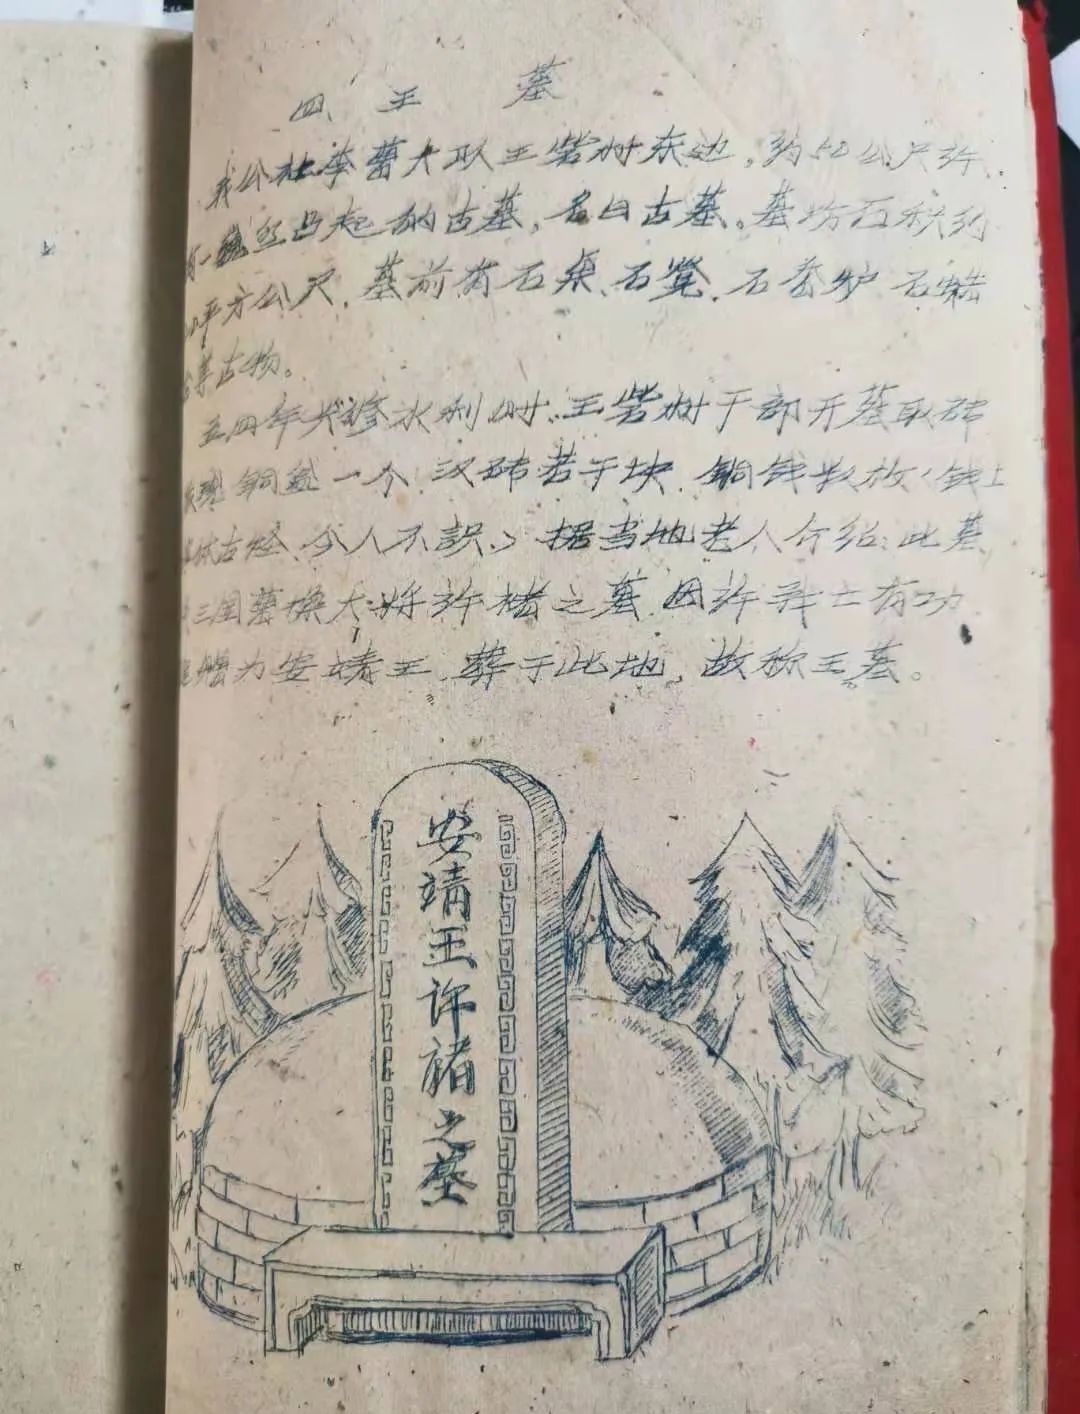 四、王 墓
我公社李蕾大队王砦树东边，约50公尺许，
有一 凸起的古墓，名曰古墓。墓坊石积约
平方公尺，墓前有石桌、石凳、石套炉 石蜡
等古物。
五四年兴修水利时，王砦树干部开墓取砖
发现铜盆一个，汉砖若干块，铜钱数放（钱上
体古怪，今人不识。）据当地老人介绍：此墓
三国 大将许褚之墓，因许 亡有功
赠为安靖王，葬于此地，故称王墓。
安靖王许褚之墓